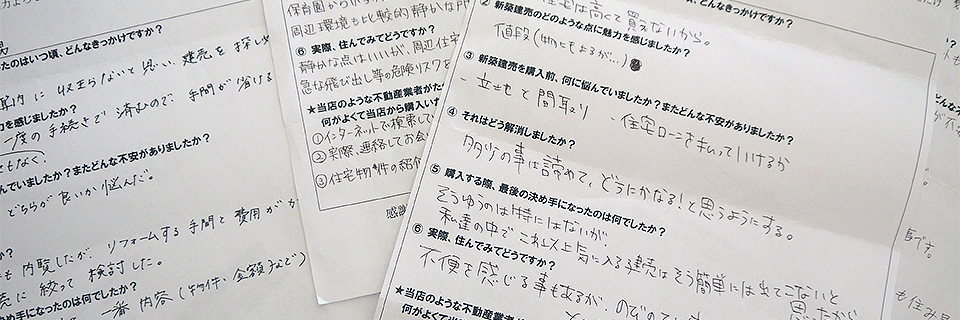 ったのはいつ頃、どんなきっかけですか？
算内に収まらないと思い、建売を探し
力を感じましたか？
一度の手続きで済むので、手間が省ける
ともなく。
んでいましたか？またどんな不安がありましたか？
どちらが良いか悩んだ。
か？
も内覧したが、リフォームする手間と費用がか
売に絞って検討した。
め手になったのは何でしたか？
一番内容（物件、金額など）で
保育園から
周辺環境も比較的静か
⑥ 実際、住んでみてどうですか？
静かな点はいいが、周辺住宅
急な飛び出し等の危険リスクを
★当店のような不動産業者がた
何がよくて当店から購入いた
①インターネットで検索してい
②実際、連絡してお会い
③住宅物件の紹介
感謝
住宅は高くて買えないから。
② 新築建売のどのような点に魅力を感じましたか？
値段（物にもよるが…）
③ 新築建売を購入前、何に悩んでいましたか？またどんな不安がありましたか？
・立地と間取り ・住宅ローンを払っていけるか
④ それはどう解消しましたか？
多少の事は諦めて、どうにかなる！と思うようにする。
⑤ 購入する際、最後の決め手になったのは何でしたか？
そうゆうのは特にはないが、
私達の中でこれ以上気に入る建売はそう簡単には出てこないと
思ったから
⑥ 実際、住んでみてどうですか？
不便を感じる事もあるが、のびの
★当店のような不動産業者が
何がよくて当店
です。
も住み